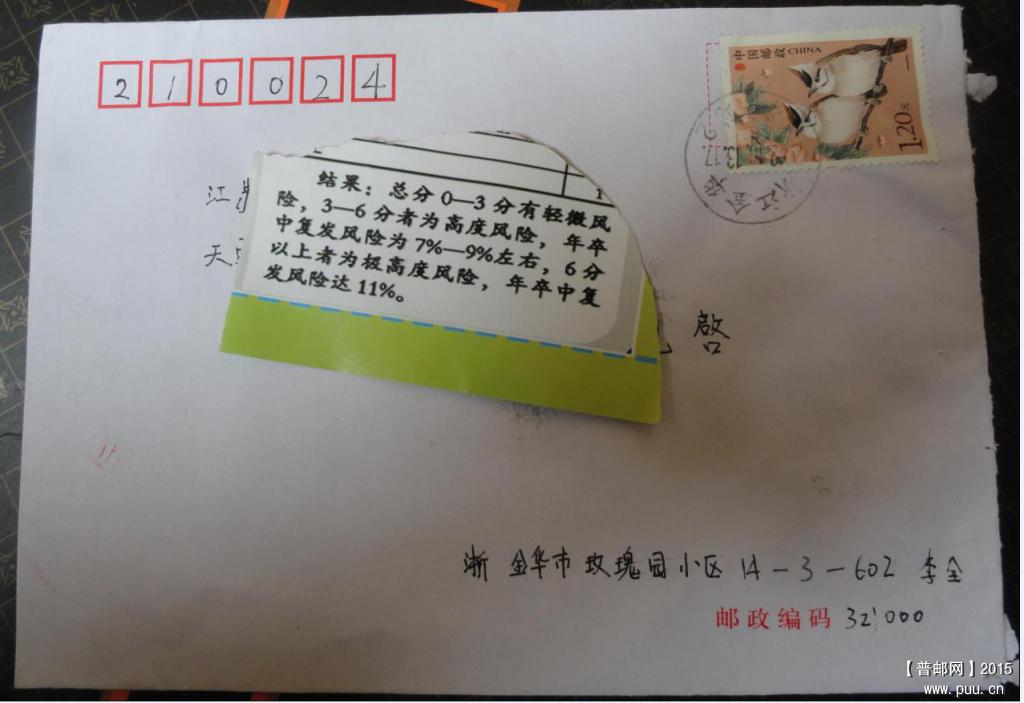 210024
中国邮政 CHINA
1.20元
浙江金华
江
天
结果：总分 0—3 分有轻微风
险，3—6 分者为高度风险，年卒
中复发风险为 7%—9%左右，6 分
以上者为极高度风险，年卒中复
发风险达 11%。
啓
浙 金华市 玫瑰园小区 14-3-602 李全
邮政编码 321000
【普邮网】2015
www.puu.cn